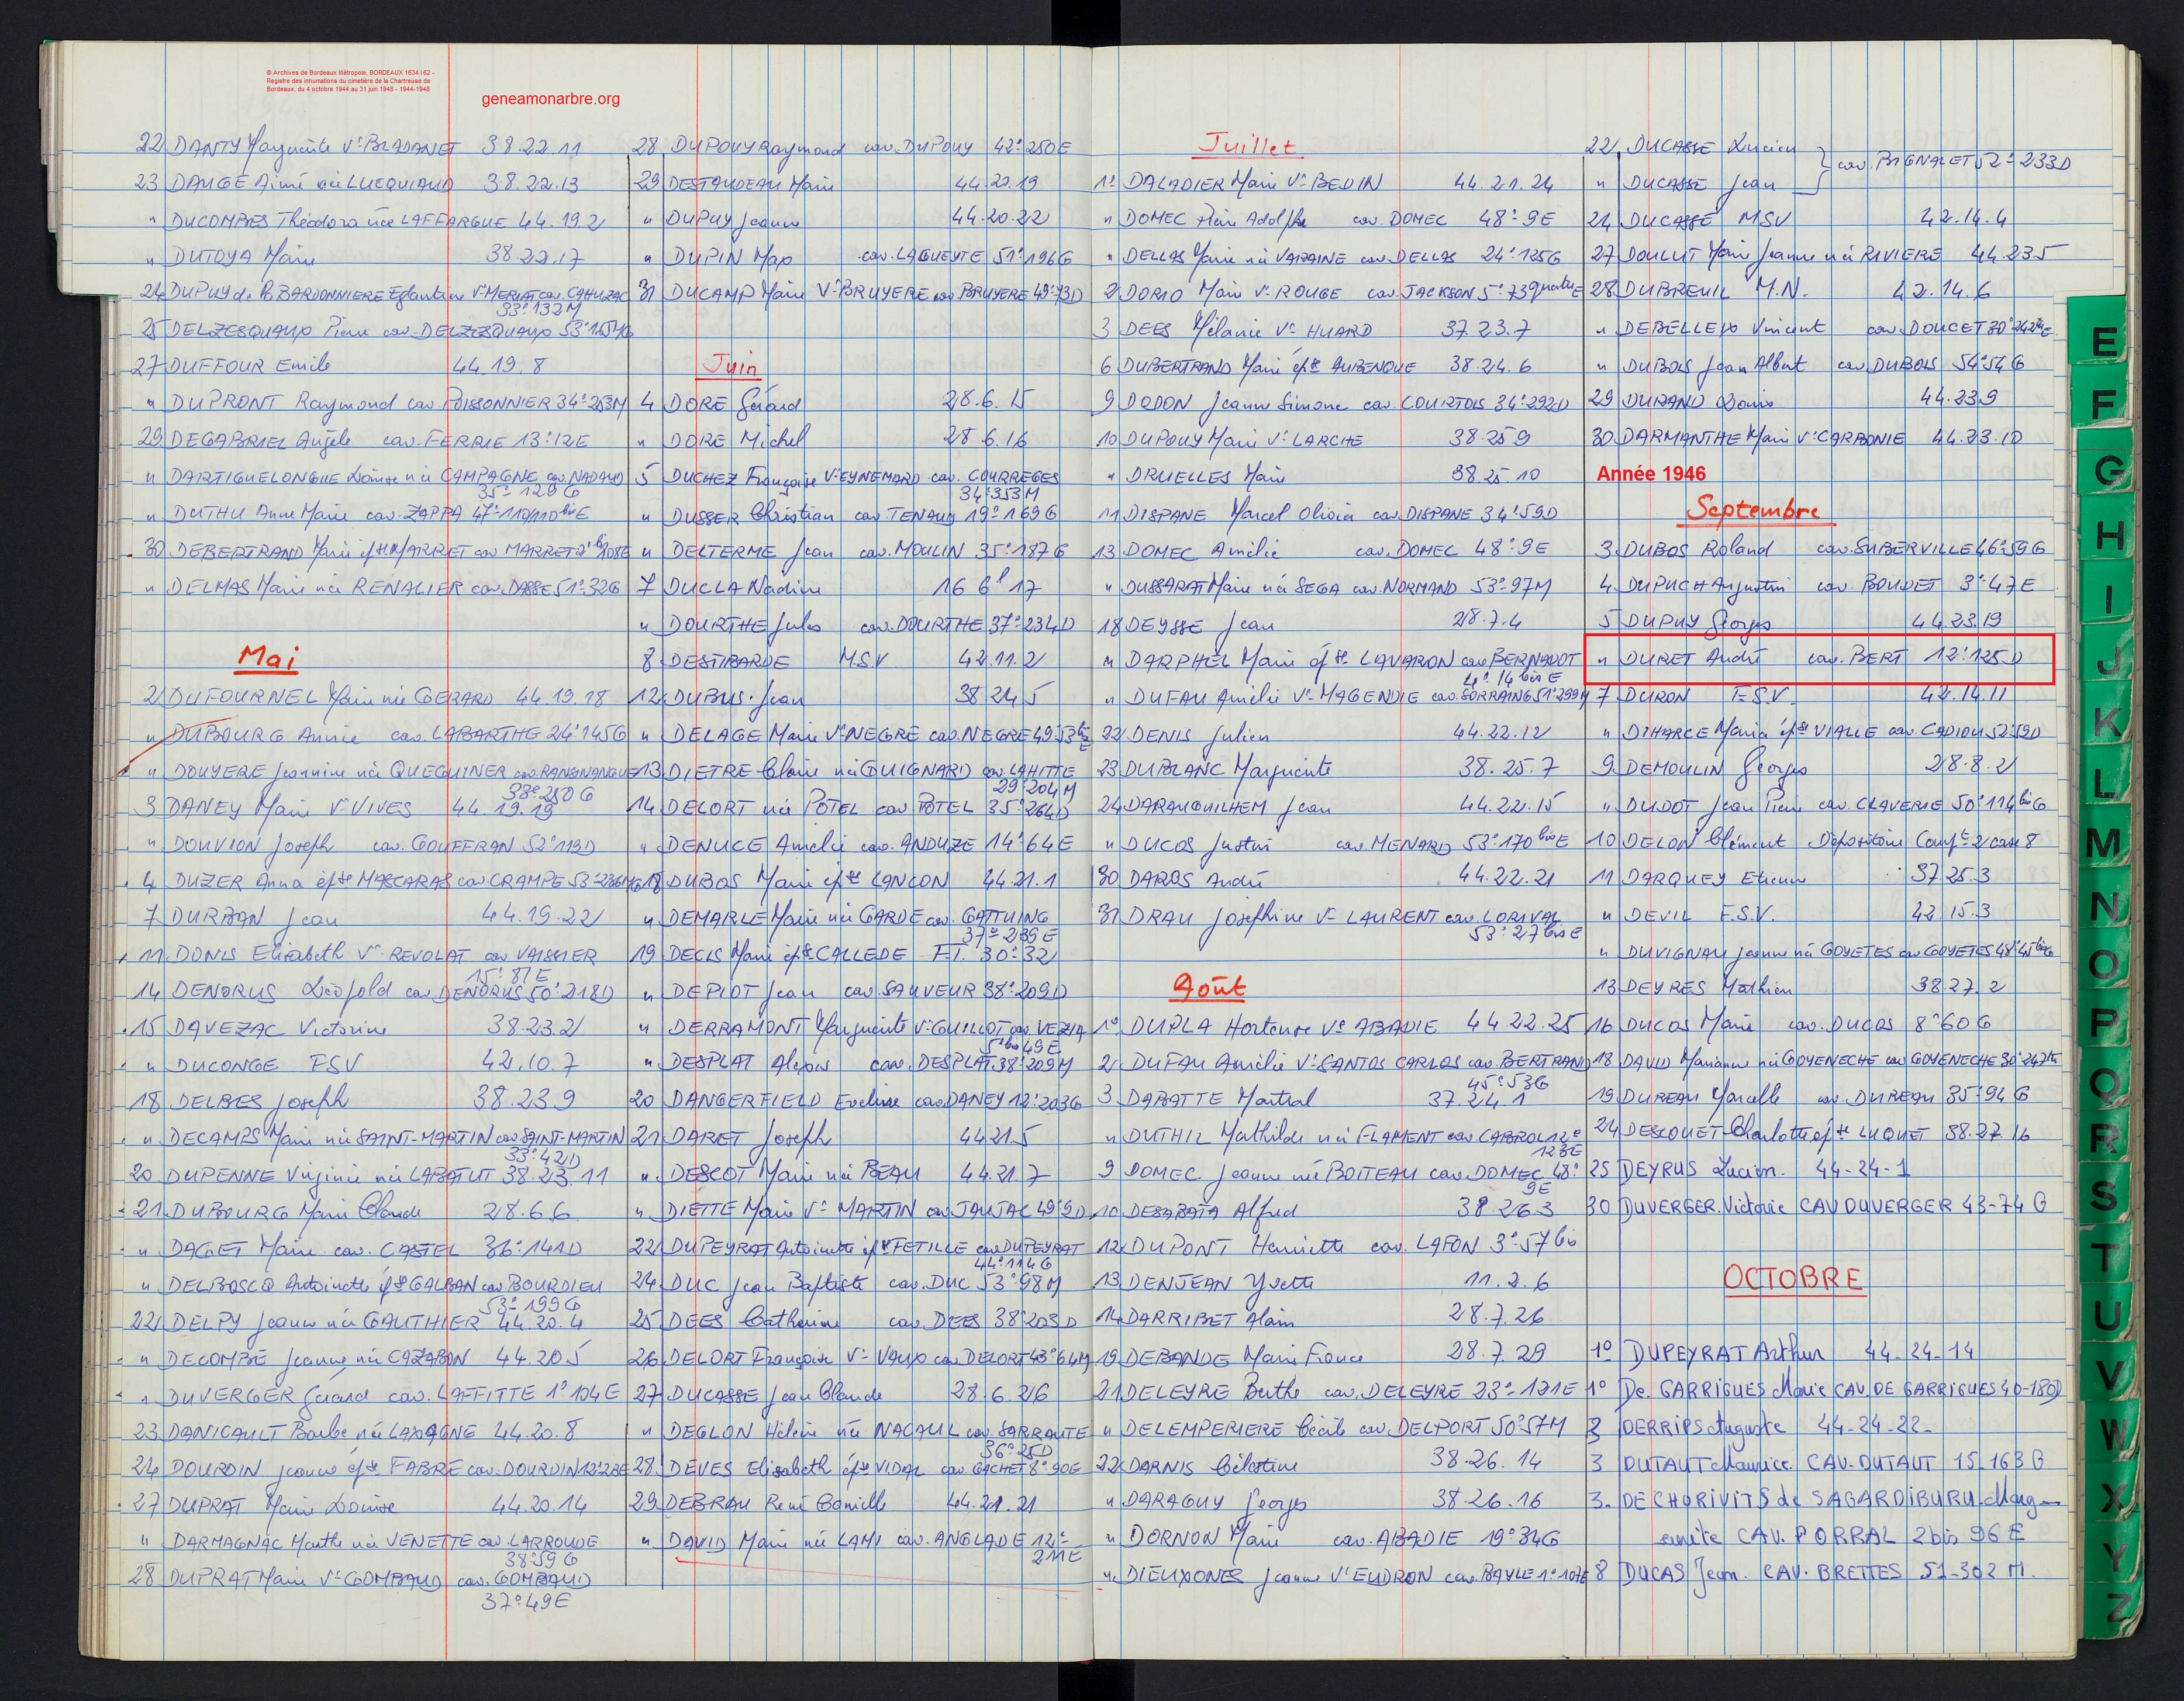 © Archives de Bordeaux Métropole, BORDEAUX 1634 I 62 -
Registre des inhumations du cimetière de la Chartreuse de
Bordeaux, du 4 octobre 1944 au 31 juin 1948 - 1944-1948
geneamonarbre.org
22 DANTY Marguerite Ve BRADANET 38.22.11
23 DAUGE Aimé née LUCQUIAUD 38.22.13
" DUCOMBES Théodora née LAFFARGUE 44.19.2
" DUTOYA Marie 38.22.17
24 DUPUY de la BARDONNIERE Eglantine Ve MERLAT cav. CAHUZAC
33e 132M
25 DELZESQUAUX Pierre cav. DELZESQUAUX
27 DUFFOUR Emile 44.19.8
" DUPRONT Raymond cav. POISSONNIER 34e 253M
29 DEGABRIEL Angèle cav. FERRIE 13e 12E
" DARTIGUELONGUE Louise née CAMPAGNE cav. NADAUD
35e 129G
" DUTHU Anne Marie cav. ZAPPA 47e 110/110 bis E
30 DEBERTRAND Marie épse MARRET cav MARRET
" DELMAS Marie née RENALIER cav. DASSE 51e 32G
Mai
2 DUFOURNEL Marie née GERARD 44.19.18
" DUBOURG Annie cav. LABARTHE 24e 145G
" DOUYERE Jeannine née QUEGUINER cav.
38e 250G
3 DANEY Marie Ve VIVES 44.19.19
" DOUVION Joseph cav. GOUFFRAN 52e 119D
4 DUZER Anna épse MASCARAS cav CRAMPE
7 DURBAN Jean 44.19.22
11 DONIS Elisabeth Ve REVOLAT cav VAISSIER
15e 81E
14 DENORUS Léopold cav. DENORUS 50e 218D
15 DAVEZAC Victorine 38.23.2
" DUCONGE FSV 42.10.7
18 DELBES Joseph 38.23.9
" DECAMPS Marie née SAINT-MARTIN cav SAINT-MARTIN
33e 42D
20 DUPENNE Virginie née LABATUT 38.23.11
21 DUBOURG Marie Claude 28.6.6
" DAGET Marie cav. CASTEL 36e 141D
" DELBOSCQ Antoinette épse GALBAN cav BOURDIEU
53e 199G
22 DELPY Jeanne née GAUTHIER 44.20.4
" DECOMBE Jeanne née CAZABON 44.20.5
" DUVERGER Gérard cav. LAFFITTE 1e 104E
23 DANICAULT Barbe née LAXAGNE 44.20.8
24 DOURDIN Jeanne épse FABRE cav. DOURDIN
27 DUPRAT Marie Louise 44.20.14
" DARMAGNAC Marthe née VENETTE cav. LARROUDE
38e 59G
28 DUPRAT Marie Ve GOMBAUD cav. GOMBAUD
37e 49E
28 DUPOUY Raymond cav. DUPOUY 42e 250E
29 DESTANDEAU Marie 44.22.19
" DUPUY Jeanne 44.20.22
" DUPIN Max cav. LAGUEYTE 51e 196G
31 DUCAMP Marie Ve BRUYERE cav. BRUYERE 49e 73D
Juin
4 DORE Gérard 28.6.15
" DORE Michel 28.6.16
5 DUCHEZ Françoise Ve EYNEMARD cav. COURREGES
34e 353M
" DUSSER Christian cav TENAUD 19e 169G
" DELTERME Jean cav. MOULIN 35e 187G
7 DUCLA Nadine
" DOURTHE Jules cav. DOURTHE 37e 234D
8 DESTIBARDE M.S.V 42.11.2
12 DUBUS Jean 38.24.5
" DELAGE Marie Ve NEGRE cav. NEGRE 49e 53 bis E
13 DIETRE Claire née GUIGNARD cav. LAHITTE
29e 204M
14 DELORT née POTEL cav. POTEL 35e 264D
" DENUCE Amélie cav. ANDUZE 14e 64E
18 DUBOS Marie épse LANCON 44.21.1
" DEMARLE Marie née GARDE cav. GATTUING
37e 239E
19 DECLS Marie épse CALLEDE F.T. 30e 32
" DEPIOT Jean cav. SAUVEUR 38e 209D
" DERRAMONT Marguerite Ve GUILLOT cav. VEZIA
5e bis 49E
" DESPLAT Alexis cav. DESPLAT 38e 209M
20 DANGERFIELD Eveline cav. DANEY 12e 203G
21 DARIET Joseph 44.21.5
" DESCOT Marie née BEAU 44.21.7
" DIETTE Marie Ve MARTIN cav JAUJAC 49e 9D
22 DUPEYRAT Antoinette épse FETILLE cav DUPEYRAT
44e 114G
24 DUC Jean Baptiste cav. DUC 53e 98M
25 DEES Catherine cav. DEES 38e 203D
26 DELORT Françoise Ve VAUX cav DELORT 43e 64M
27 DUCASSE Jean Claude 28.6.26
" DEGLON Hélène née NACAUL cav. SARRAUTE
36e 25D
28 DEVES Elisabeth épse VIDAL cav GACHET 8e 90E
29 DEBRAU René Camille 44.21.21
" DAVID Marie née LAMI cav. ANGLADE 12e
211E
Juillet
1er DALADIER Marie Ve BEDIN 44.21.24
" DOMEC Pierre Adolphe cav. DOMEC 48e 9E
" DELLAS Marie née VARAINE cav DELLAS 24e 125G
2 DORIO Marie Ve ROUGE cav. JACKSON 5e 73 quater E
3 DEES Mélanie Ve HUARD 37.23.7
6 DUBERTRAND Marie épse AUBENQUE 38.24.6
9 DODON Jeanne Simone cav. COURTOIS 34e 292D
10 DUPOUY Marie Ve LARCHE 38.25.9
" DRUELLES Marie 38.25.10
11 DISPANE Marcel Olivier cav DISPANE 34e 59D
13 DOMEC Amélie cav. DOMEC 48e 9E
" DUSSARAT Marie née SEGA cav. NORMAND 53e 97M
18 DEYSSE Jean 28.7.4
" DARPHEL Marie épse LAVARON cav BERNADOT
4e 14 bis E
" DUFAU Amélie Ve MAGENDIE cav. SORRAING 51e 299M
22 DENIS Julien 44.22.12
23 DUBLANC Marguerite 38.25.7
24 DARAUQUILHEM Jean 44.22.15
" DUCOS Justin cav. MENARD 53e 170 bis E
30 DAROS André 44.22.21
31 DRAU Joséphine Ve LAURENT cav. LORIVAL
53e 27 bis E
Août
1er DUPLA Hortense Ve ABADIE 44.22.25
2 DUFAU Amélie Ve SANTOS CARLOS cav. BERTRAND
45e 53G
3 DABATTE Martial 37.24.1
" DUTHIL Mathilde née FLAMENT cav CABROL 12e
123E
9 DOMEC Jeanne née BOITEAU cav. DOMEC 48e
9E
10 DESABATA Alfred 38.26.3
12 DUPONT Henriette cav. LAFON 3e 57 bis
13 DENJEAN Yvette 11.2.6
14 DARRIBET Alain 28.7.26
19 DEBANDE Marie France 28.7.29
21 DELEYRE Berthe cav. DELEYRE 23e 121E
" DELEMPERIERE Cécile cav. DELPORT 50e 57M
22 DARNIS Célestine 38.26.14
" DARAGUY Georges 38.26.16
" DORNON Marie cav. ABADIE 19e 34G
" DIEUXONES Jeanne Ve EUDRON cav. BAYLE 1e 107E
22 DUCASSE Lucien
" DUCASSE Jean } cav. BIGNALET 52e 233D
24 DUCASSE MSV 42.14.4
27 DOULUT Marie Jeanne née RIVIERE 44.23.5
28 DUBREUIL M.N. 42.14.6
" DEBELLEIX Vincent cav. DOUCET
" DUBOIS Jean Albert cav. DUBOIS 54e 54G
29 DURAND Louis 44.23.9
30 DARMANTHE Marie Ve CARBONIE 44.23.10
Année 1946
Septembre
3 DUBOS Roland cav. SUBERVILLE 46e 59G
4 DUPUCH Augustin cav. BOUDET 3e 47E
5 DUPUY Georges 44.23.19
" DURET André cav. BERT 12e 125D
7 DURON F.S.V. 42.14.11
" DIHARCE Maria épse VIALLE cav. CADIOU 52e 59D
9 DEMOULIN Georges 28.8.2
" DUDOT Jean Pierre cav. CLAVERIE 50e 114 bis G
10 DELON Clément Dépositoire Compt 2 case 8
11 DARQUEY Etienne 37.25.3
" DEVIL F.S.V. 42.15.3
" DUVIGNAU Jeanne née GOYETES cav GOYETES 48e 45 bis G
13 DEYRES Mathieu 38.27.2
16 DUCOS Marie cav. DUCOS 8e 60G
18 DAVID Marianne née GOYENECHE cav GOYENECHE
19 DUREAU Marcelle cav. DUREAU 35e 94G
24 DESCOUET Charlotte épse LUQUET 38.27.16
25 DEYRUS Lucien. 44-24-1
30 DUVERGER. Victorie CAV DUVERGER 43-74 G
OCTOBRE
1o DUPEYRAT Arthur 44-24-14
1o De. GARRIGUES Marie CAV. DE GARRIGUES 40-180D
3 DERRIPS Auguste 44-24-22-
3 DUTAUT Maurice. CAV. DUTAUT 15-163 G
3. DE CHURIVITS de SAGARDIBURU. Marg-
uerite CAV. PORRAL 2 bis 96 E
8 DUCAS Jean. CAV. BRETTES 51-302 M.
E
F
G
H
I
J
K
L
M
N
O
P
Q
R
S
T
U
V
W
X
Y
Z